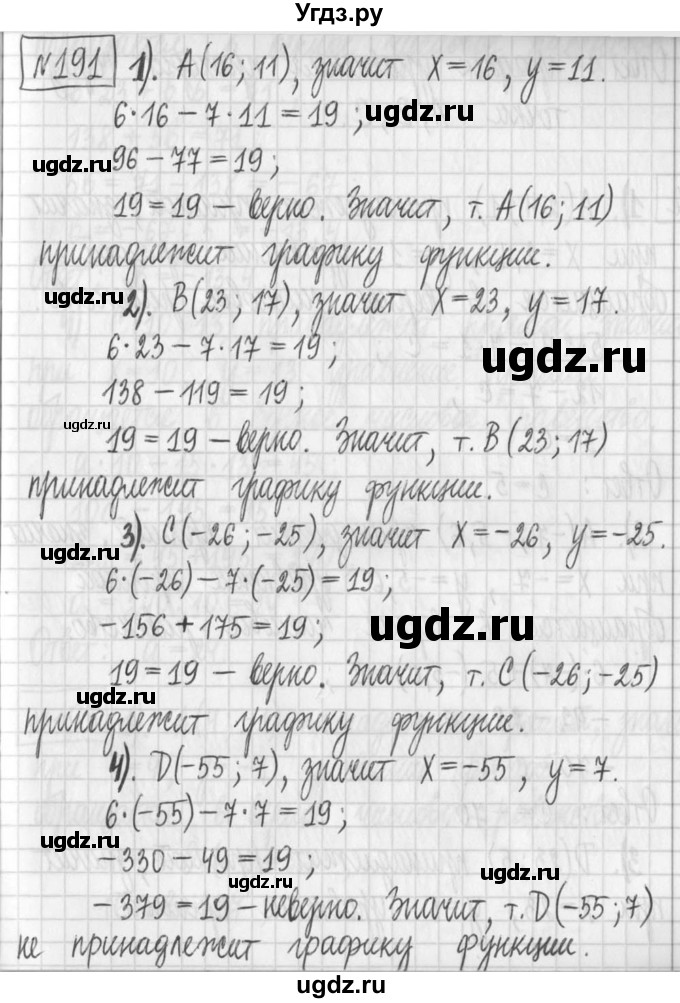 Угдз.ру
№191 1). A(16; 11), значит x=16, y=11.
6·16-7·11=19; ugdz.ru
ugdz.ru 96-77=19;
19=19 - верно. Значит, т. A(16; 11)
принадлежит графику функции.
ugdz.ru 2). B(23; 17), значит x=23, y=17.
6·23-7·17=19; ugdz.ru
138-119=19;
ugdz.ru 19=19 - верно. Значит, т. B(23; 17)
принадлежит графику функции.
ugdz.ru 3). C(-26; -25), значит x=-26, y=-25.
6·(-26)-7·(-25)=19;
-156+175=19; ugdz.ru
19=19 - верно. Значит, т. C(-26; -25)
принадлежит графику функции.
4). D(-55; 7), значит x=-55, y=7.
6·(-55)-7·7=19;
ugdz.ru -330-49=19; ugdz.ru ugdz.ru
-379=19 - неверно. Значит, т. D(-55; 7)
не принадлежит графику функции.
ugdz.ru